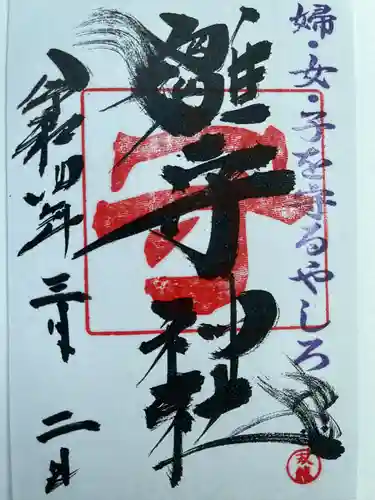 婦・女・子を守るやしろ
雛子神社
令和四年三月二日